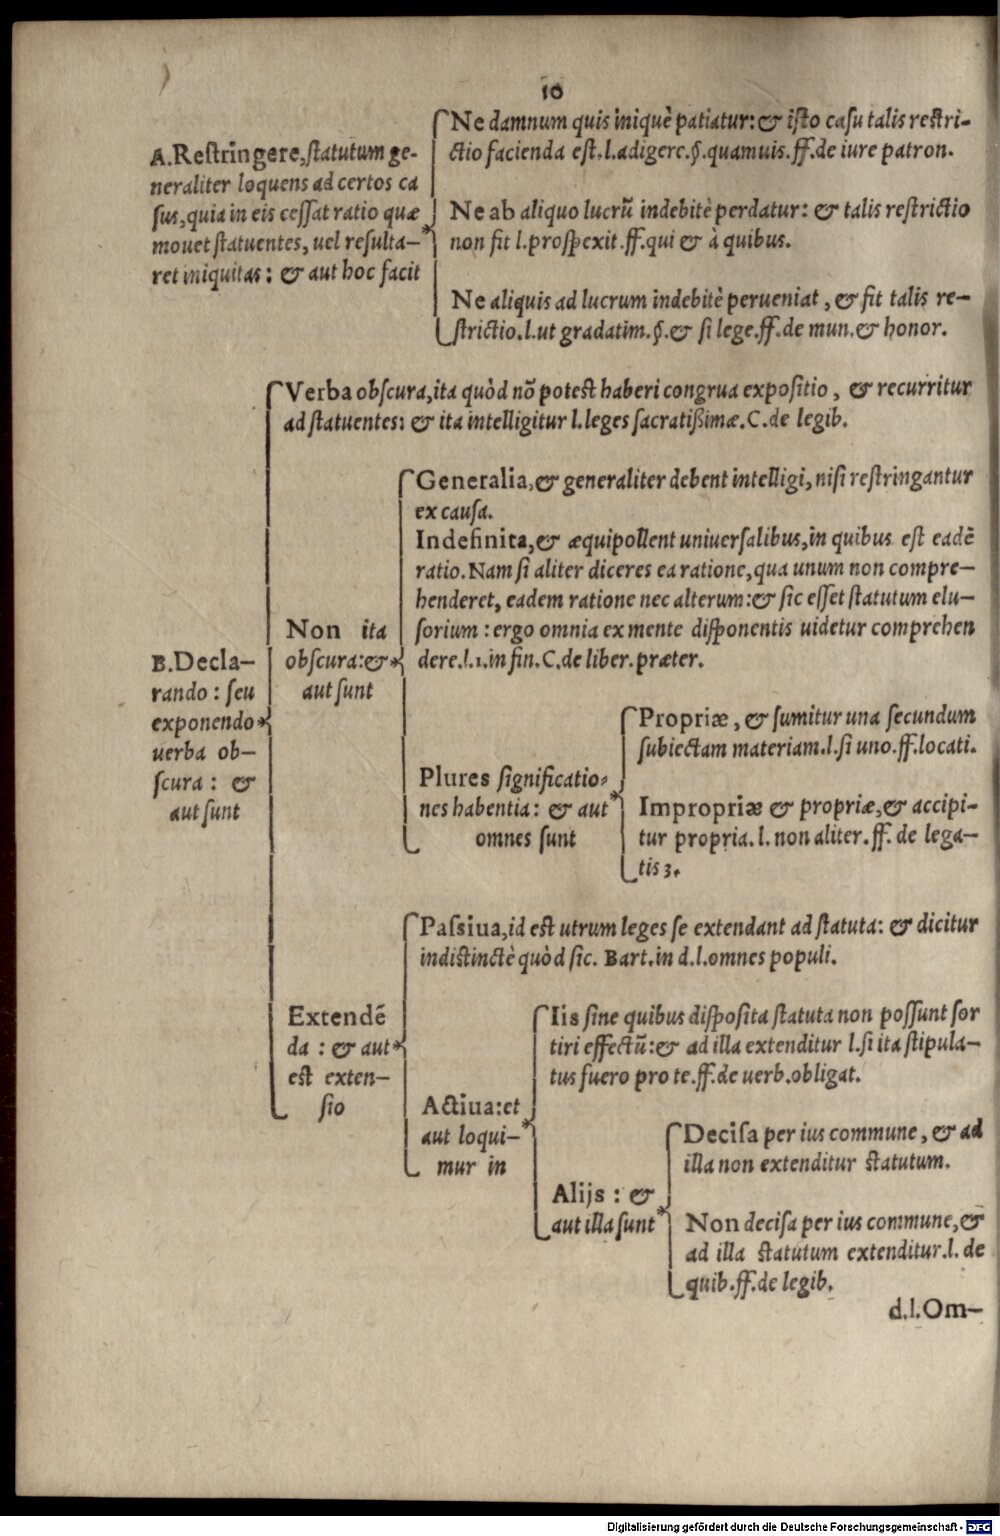 10
A. Restringere, statutum ge-
neraliter loquens ad certos ca
sus, quia in eis cessat ratio quæ
mouet statuentes, uel resulta-
ret iniquitas: & aut hoc facit
Ne damnum quis iniquè patiatur: & isto casu talis restri-
ctio facienda est. l. adigere. §. quamuis. ff. de iure patron.
Ne ab aliquo lucrũ indebitè perdatur: & talis restrictio
non fit l. prospexit. ff. qui & à quibus.
Ne aliquis ad lucrum indebitè perueniat, & fit talis re-
strictio. l. ut gradatim. §. & si lege. ff. de mun. & honor.
B. Decla-
rando: seu
exponendo
uerba ob-
scura: &
aut sunt
Verba obscura, ita quòd nõ potest haberi congrua expositio, & recurritur
ad statuentes: & ita intelligitur l. leges sacratißimæ. C. de legib.
Non ita
obscura: &
aut sunt
Generalia, & generaliter debent intelligi, nisi restringantur
ex causa.
Indefinita, & æquipollent uniuersalibus, in quibus est eadẽ
ratio. Nam si aliter diceres ea ratione, qua unum non compre-
henderet, eadem ratione nec alterum: & sic esset statutum elu-
sorium: ergo omnia ex mente disponentis uidetur comprehen
dere. l. 1. in fin. C. de liber. præter.
Plures significatio-
nes habentia: & aut
omnes sunt
Propriæ, & sumitur una secundum
subiectam materiam. l. si uno. ff. locati.
Impropriæ & propriæ, & accipi-
tur propria. l. non aliter. ff. de lega-
tis 3.
Extendẽ
da: & aut
est exten-
sio
Passiua, id est utrum leges se extendant ad statuta: & dicitur
indistinctè quòd sic. Bart. in d. l. omnes populi.
Actiua: et
aut loqui-
mur in
Iis sine quibus disposita statuta non possunt sor
tiri effectũ: & ad illa extenditur l. si ita stipula-
tus fuero pro te. ff. de uerb. obligat.
Alijs: &
aut illa sunt
Decisa per ius commune, & ad
illa non extenditur statutum.
Non decisa per ius commune, &
ad illa statutum extenditur. l. de
quib. ff. de legib.
d. l. Om-
Digitalisierung gefördert durch die Deutsche Forschungsgemeinschaft - DFG